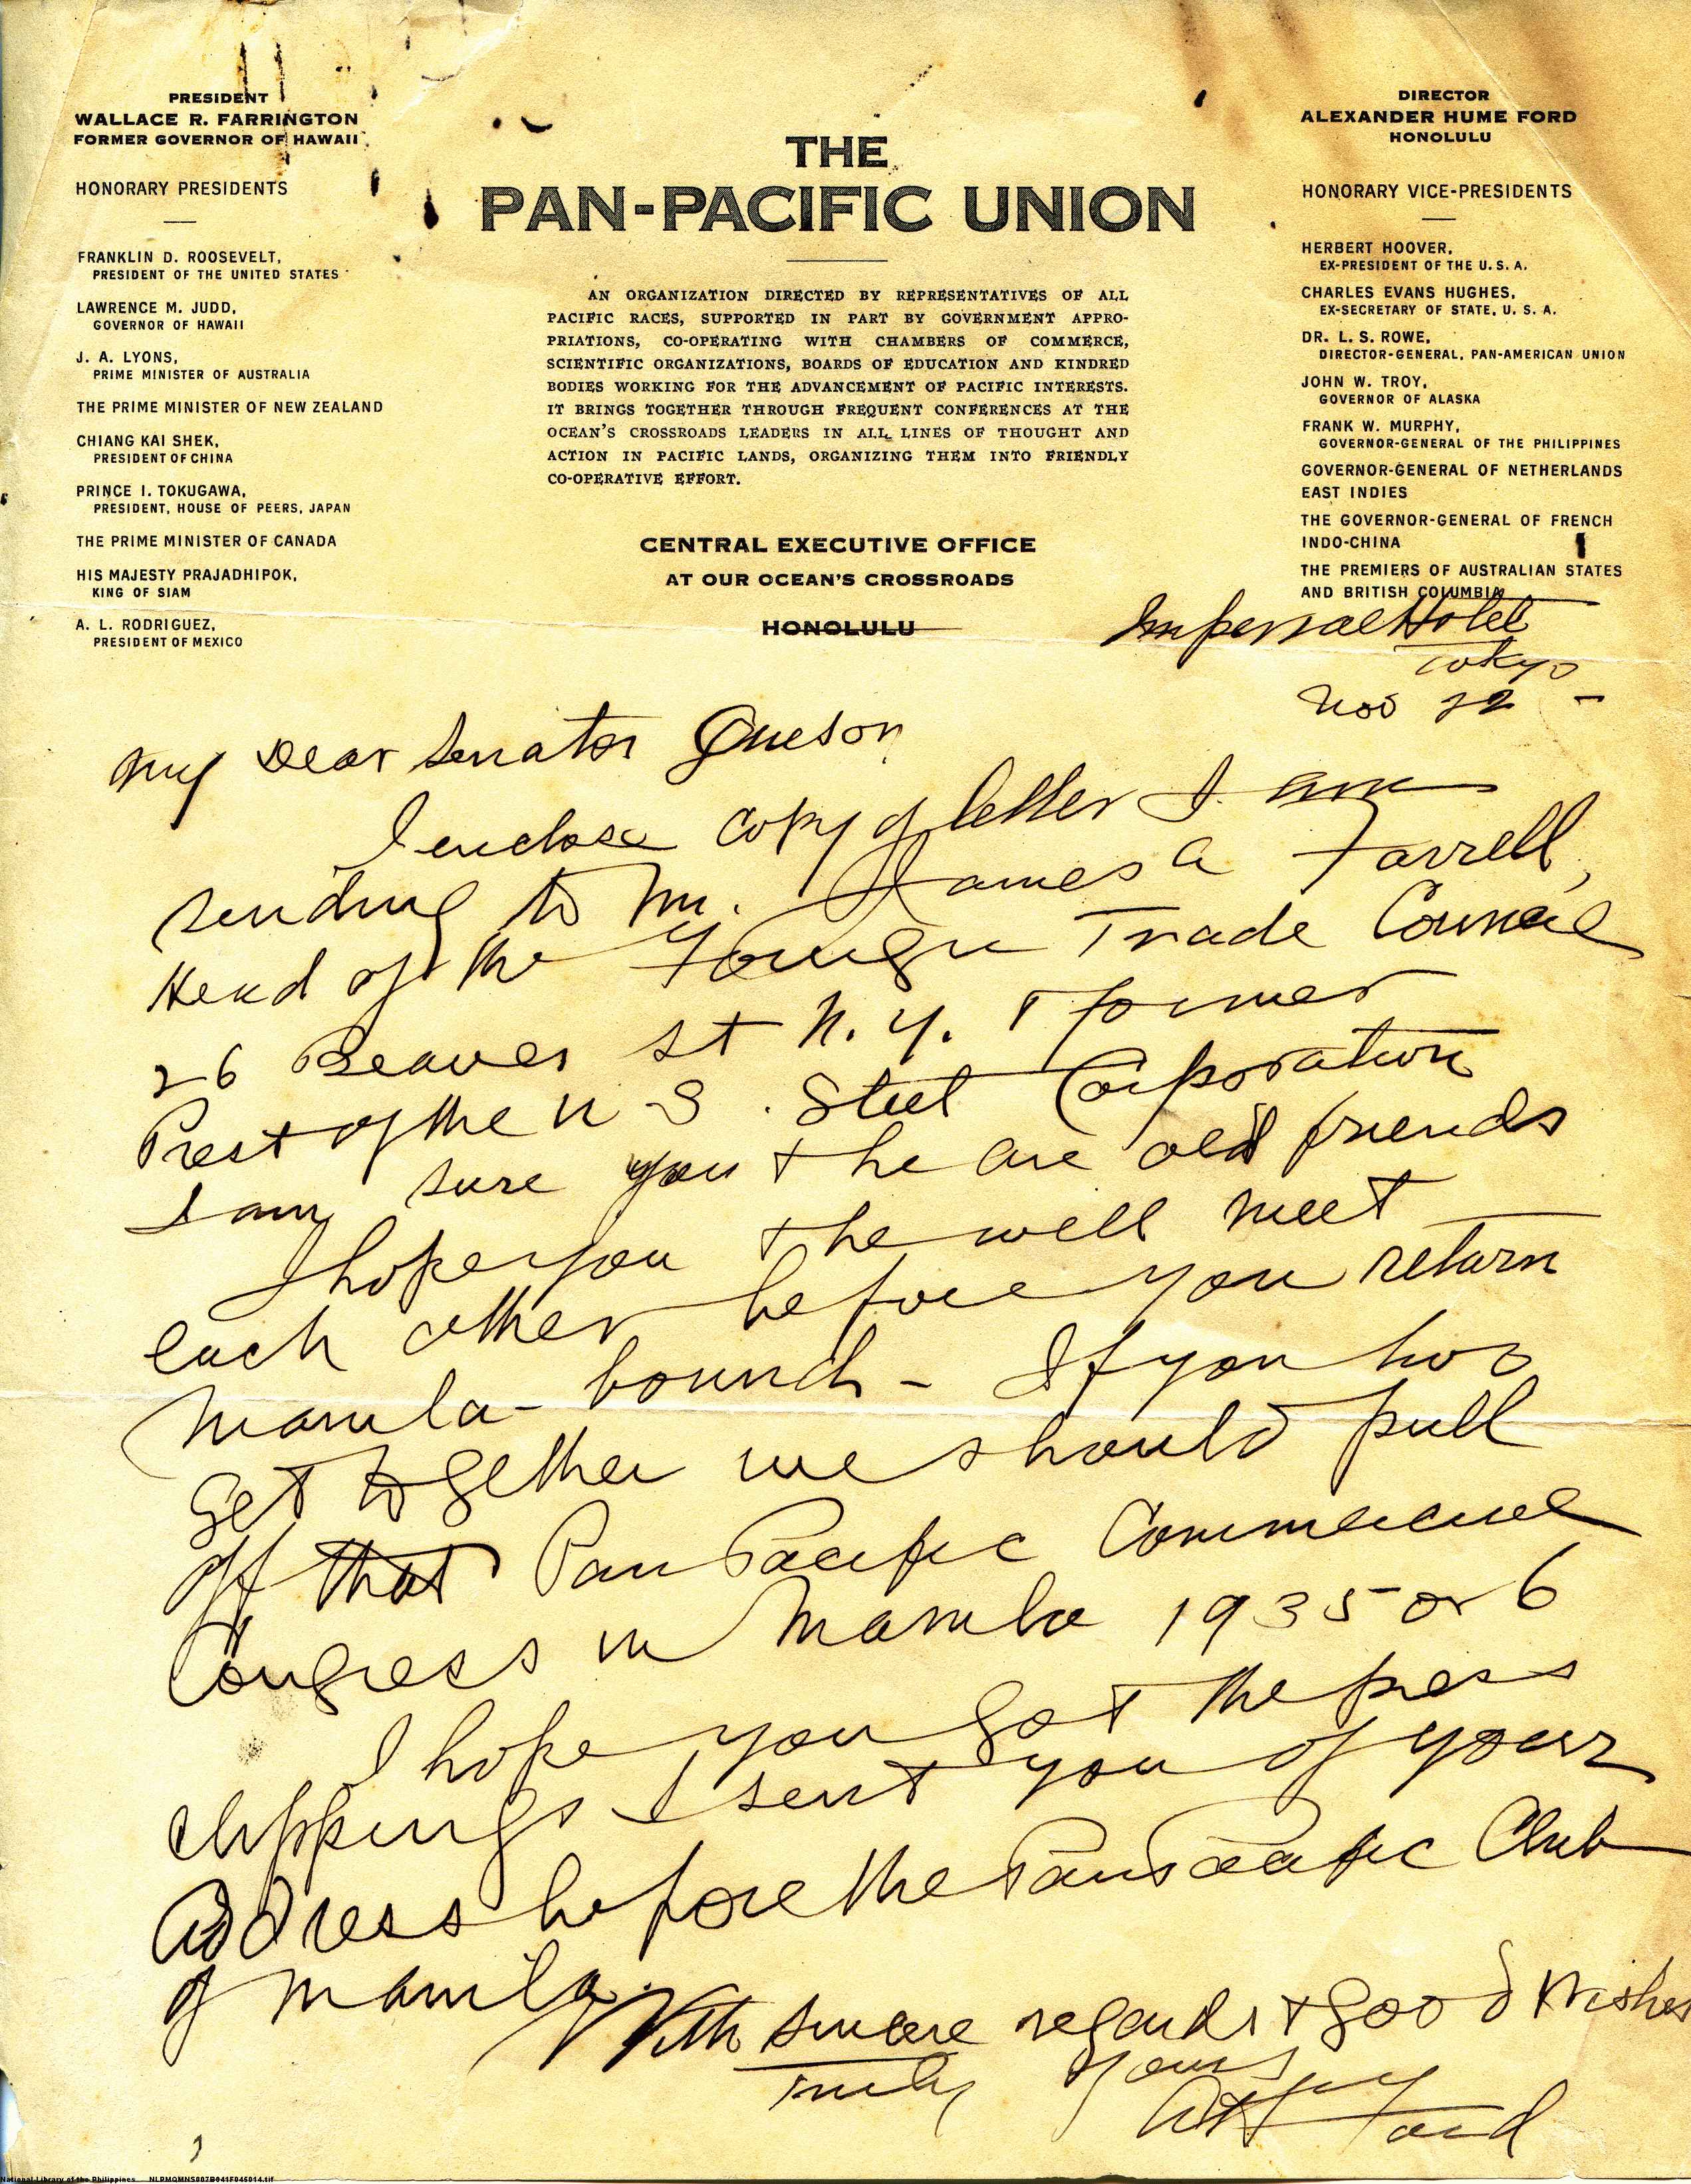 PRESIDENT
WALLACE R. FARRINGTON
FORMER GOVERNOR OF HAWAII
HONORARY PRESIDENTS
FRANKLIN D. ROOSEVELT,
PRESIDENT OF THE UNITED STATES
LAWRENCE M. JUDD,
GOVERNOR OF HAWAII
J. A. LYONS,
PRIME MINISTER OF AUSTRALIA
THE PRIME MINISTER OF NEW ZEALAND
CHIANG KAI SHEK,
PRESIDENT OF CHINA
PRINCE I. TOKUGAWA,
PRESIDENT, HOUSE OF PEERS, JAPAN
THE PRIME MINISTER OF CANADA
HIS MAJESTY PRAJADHIPOK,
KING OF SIAM
A. L. RODRIGUEZ,
PRESIDENT OF MEXICO
THE
PAN-PACIFIC UNION
AN ORGANIZATION DIRECTED BY REPRESENTATIVES OF ALL
PACIFIC RACES, SUPPORTED IN PART BY GOVERNMENT APPRO-
PRIATIONS, CO-OPERATING WITH CHAMBERS OF COMMERCE,
SCIENTIFIC ORGANIZATIONS, BOARDS OF EDUCATION AND KINDRED
BODIES WORKING FOR THE ADVANCEMENT OF PACIFIC INTERESTS.
IT BRINGS TOGETHER THROUGH FREQUENT CONFERENCES AT THE
OCEAN'S CROSSROADS LEADERS IN ALL LINES OF THOUGHT AND
ACTION IN PACIFIC LANDS, ORGANIZING THEM INTO FRIENDLY
CO-OPERATIVE EFFORT.
CENTRAL EXECUTIVE OFFICE
AT OUR OCEAN'S CROSSROADS
HONOLULU
DIRECTOR
ALEXANDER HUME FORD
HONOLULU
HONORARY VICE-PRESIDENTS
HERBERT HOOVER,
EX-PRESIDENT OF THE U. S. A.
CHARLES EVANS HUGHES,
EX-SECRETARY OF STATE, U. S. A.
DR. L. S. ROWE,
DIRECTOR-GENERAL, PAN-AMERICAN UNION
JOHN W. TROY,
GOVERNOR OF ALASKA
FRANK W. MURPHY,
GOVERNOR-GENERAL OF THE PHILIPPINES
GOVERNOR-GENERAL OF NETHERLANDS
EAST INDIES
THE GOVERNOR-GENERAL OF FRENCH
INDO-CHINA
THE PREMIERS OF AUSTRALIAN STATES
AND BRITISH COLUMBIA
Imperial Hotel
Tokyo
Nov 22 -
My Dear Senator Queson
I enclose copy of letter I am
sending to Mr. James A Farrell,
Head of the Foreign Trade Council
26 Beaver St N.Y. & former
Prest of the U S. Steel Corporation
I am sure you & he are old friends
I hope you & he will meet
each other before you return
Manila - bound - If you two
get together we should pull
off that Pan Pacific Commercial
Congress in Manila 1935 or 6
I hope you got the press
clippings I sent you of your
address before the Pan Pacific Club
of Manila.
With sincere regards & good wishes
Truly Yours
Ford
National Library of the Philippines NLPMQMNS007B041F045014.tif